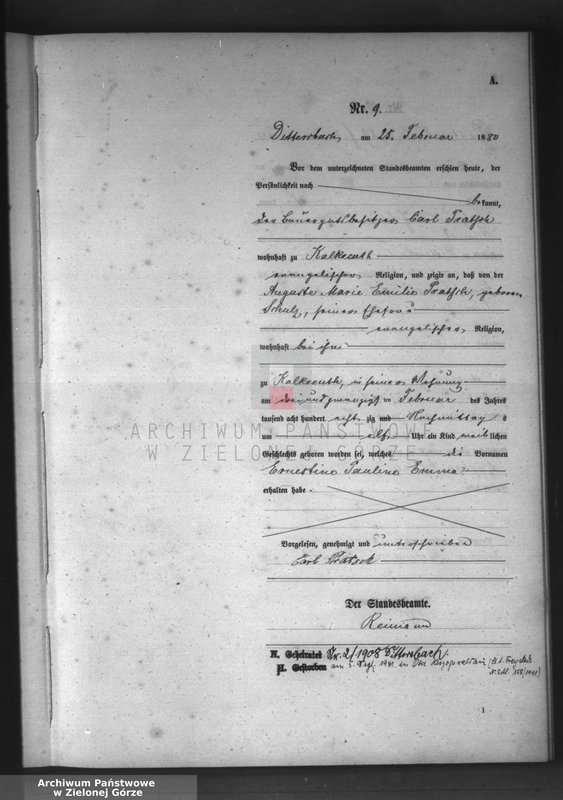 A.
Nr. 9.
Dittersbach, am 25. Februar 1880
Vor dem unterzeichneten Standesbeamten erschien heute, der
Persönlichkeit nach
bekannt,
der Bauergutsbesitzer Carl Pratsch
wohnhaft zu Kalkreuth
evangelischer Religion, und zeigte an, daß von der
Auguste Marie Emilie Pratsch, geborene
Schulz, seiner Ehefrau
evangelischer Religion,
wohnhaft bei ihm
zu Kalkreuth, in seiner Wohnung
am drei und zwanzigst en Februar des Jahres
tausend acht hundert acht zig und Nachmittags
um elf Uhr ein Kind weiblichen
Geschlechts geboren worden sei, welches die Vornamen
Ernestine Pauline Emma
erhalten habe.
Vorgelesen, genehmigt und unterschrieben
Carl Pratsch
Der Standesbeamte.
Reimann
Geheiratet Nr. 2/1908 Dittersbach.
Gestorben am 5. 1941 in
ARCHIWUM PAŃSTWOWE
W ZIELONEJ GÓRZE
1
Archiwum Państwowe
w Zielonej Górze